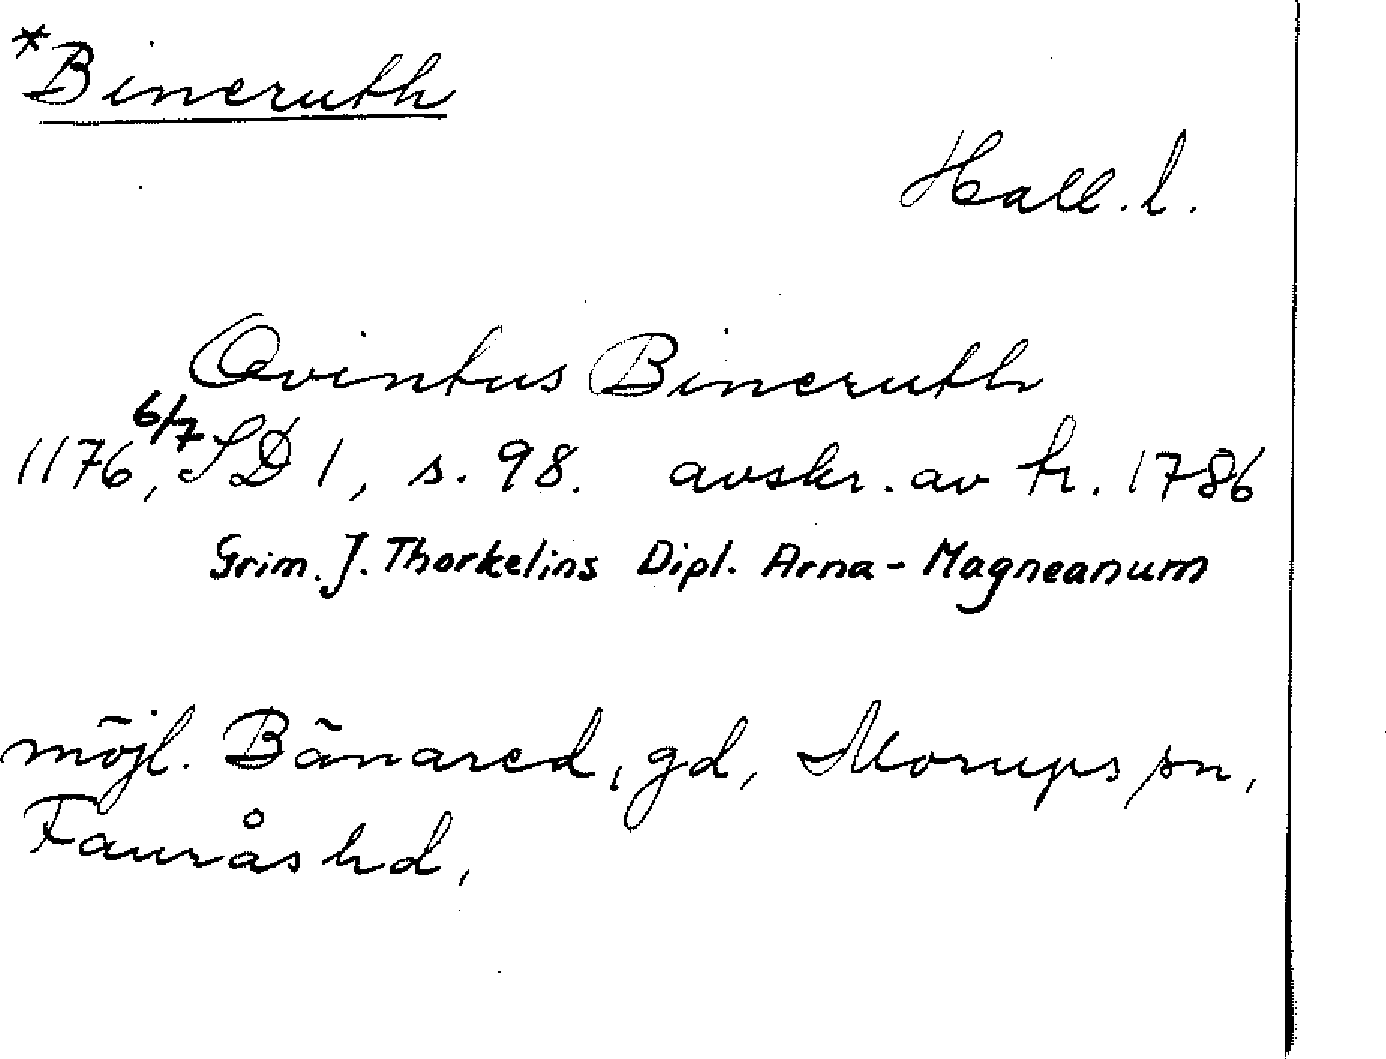 *Bineruth
Hall. l.
Qvintus Bineruth
1176 6/7, SD 1, s. 98. avskr. av tr. 1786
Grim. J. Thorkelins Dipl. Arna-Magneanum
möjl. Bänared, gd, Morups sn,
Faurås hd,